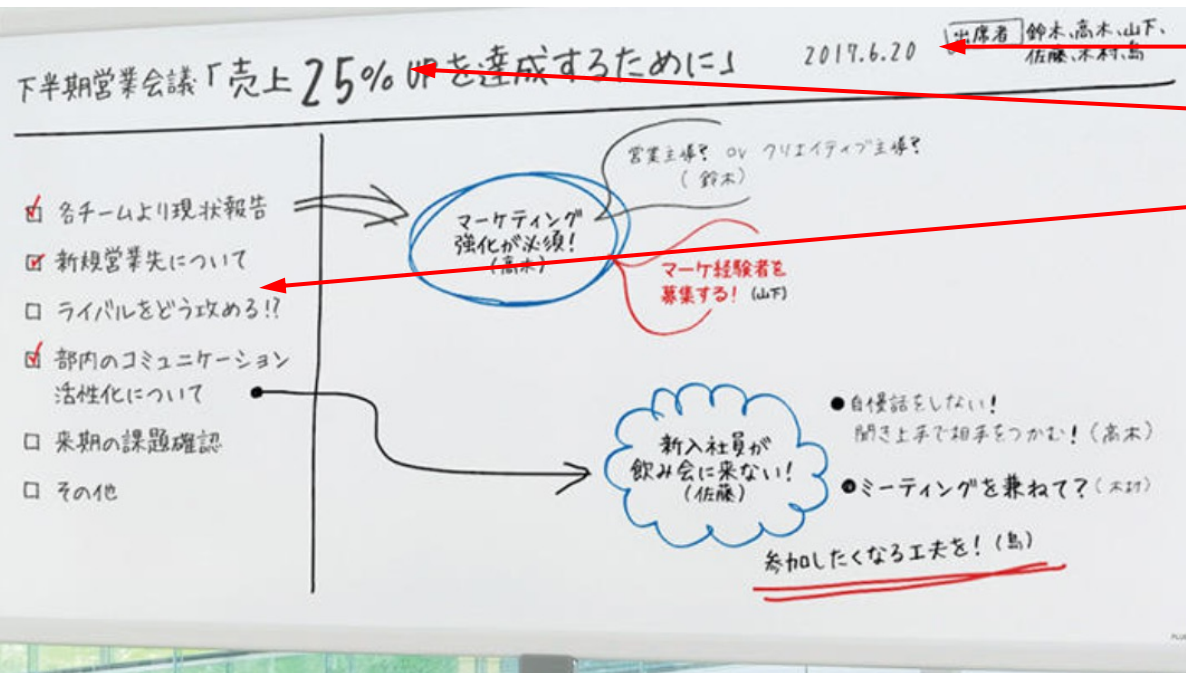 下半期営業会議「売上25%UPを達成するために」
2017.6.20
出席者 鈴木、高木、山下、
佐藤、木村、島
☑ 各チームより現状報告
☑ 新規営業先について
□ ライバルをどう攻める!?
☑ 部内のコミュニケーション
活性化について
□ 来期の課題確認
□ その他
マーケティング
強化が必須!
(高木)
営業主導? or クリエイティブ主導?
(鈴木)
マーケ経験者を
募集する! (山下)
新入社員が
飲み会に来ない!
(佐藤)
●自慢話をしない!
聞き上手で相手をつかむ! (高木)
●ミーティングを兼ねて? (木村)
参加したくなる工夫を! (島)
PLUS